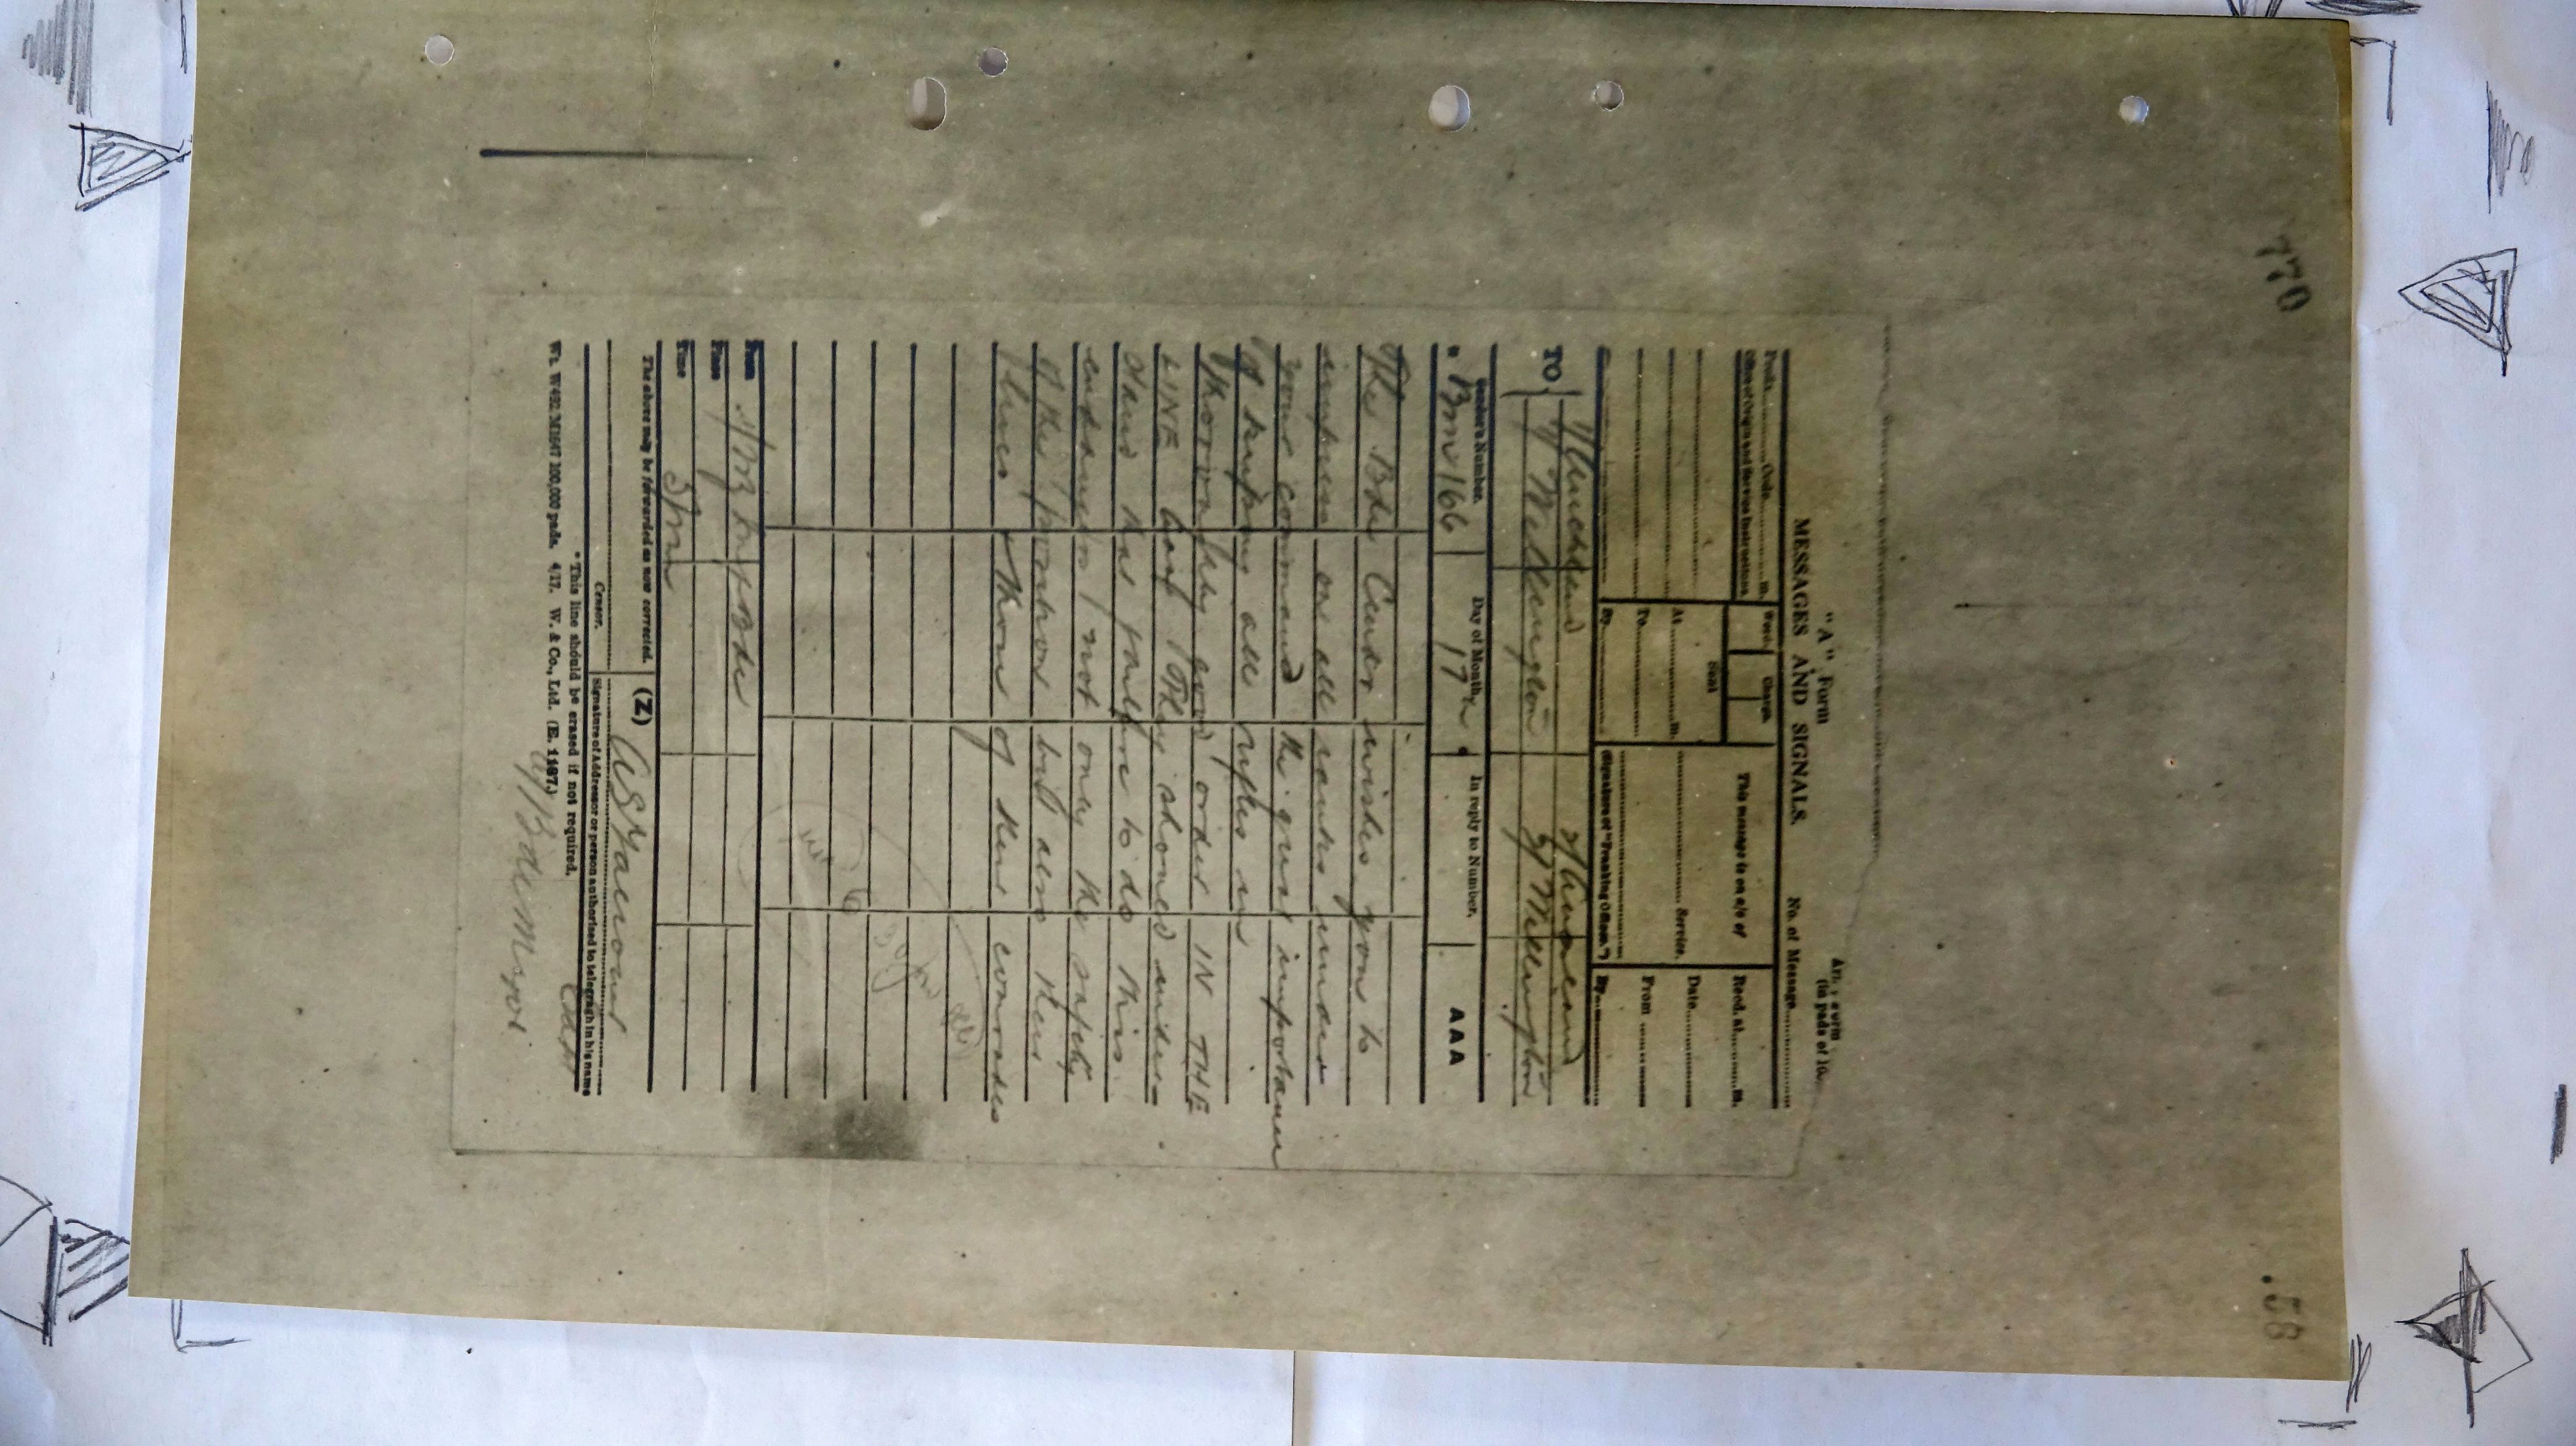 770
.58
"A" Form
Army Form
(in pads of 10
MESSAGES AND SIGNALS.
No. of Message
Prefix Code m.
Office of Origin and Service Instructions.
Words
Charge.
Sent
At m.
To
By
This message is on a/c of
Service.
(Signature of "Franking Officer.")
Recd. at m.
Date
From
By
TO
1/Auckland 2/Auckland
1/Wellington 2/Wellington
Sender's Number.
Day of Month.
In reply to Number.
* BM 166
17th
AAA
The Bde Comdr wishes you to
impress on all ranks under
your command the great importance
of keeping all rifles in
thoroughly good order IN THE
LINE They should under-
stand that failure to do this
endangers not only the safety
of the position but also their
lives those of their comrades
From
1/NZ Inf Bde
Place
Time
The above may be forwarded as now corrected.
(Z)
Censor.
Signature of Addressor or person authorised to telegraph in his name
Capt
* This line should be erased if not required.
Wt. W492/M1647 100,000 pads. 4/17. W. & Co., Ltd. (E. 1187.)
Bde Major